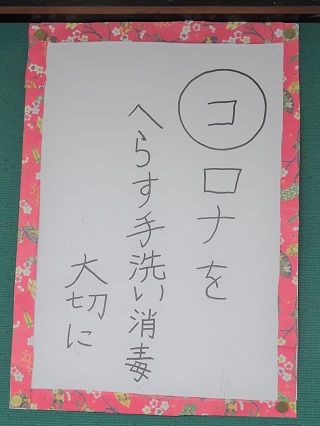 コロナを
へらす手洗い消毒
大切に